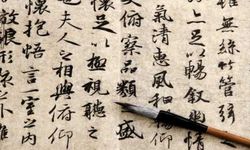 無絲竹管弦
足以暢叙幽情
氣清惠風和暢仰
俯察品類盛
懷足以極視聽之
夫人之相與俯仰
懷抱悟言一室之內
放浪形骸之外雖